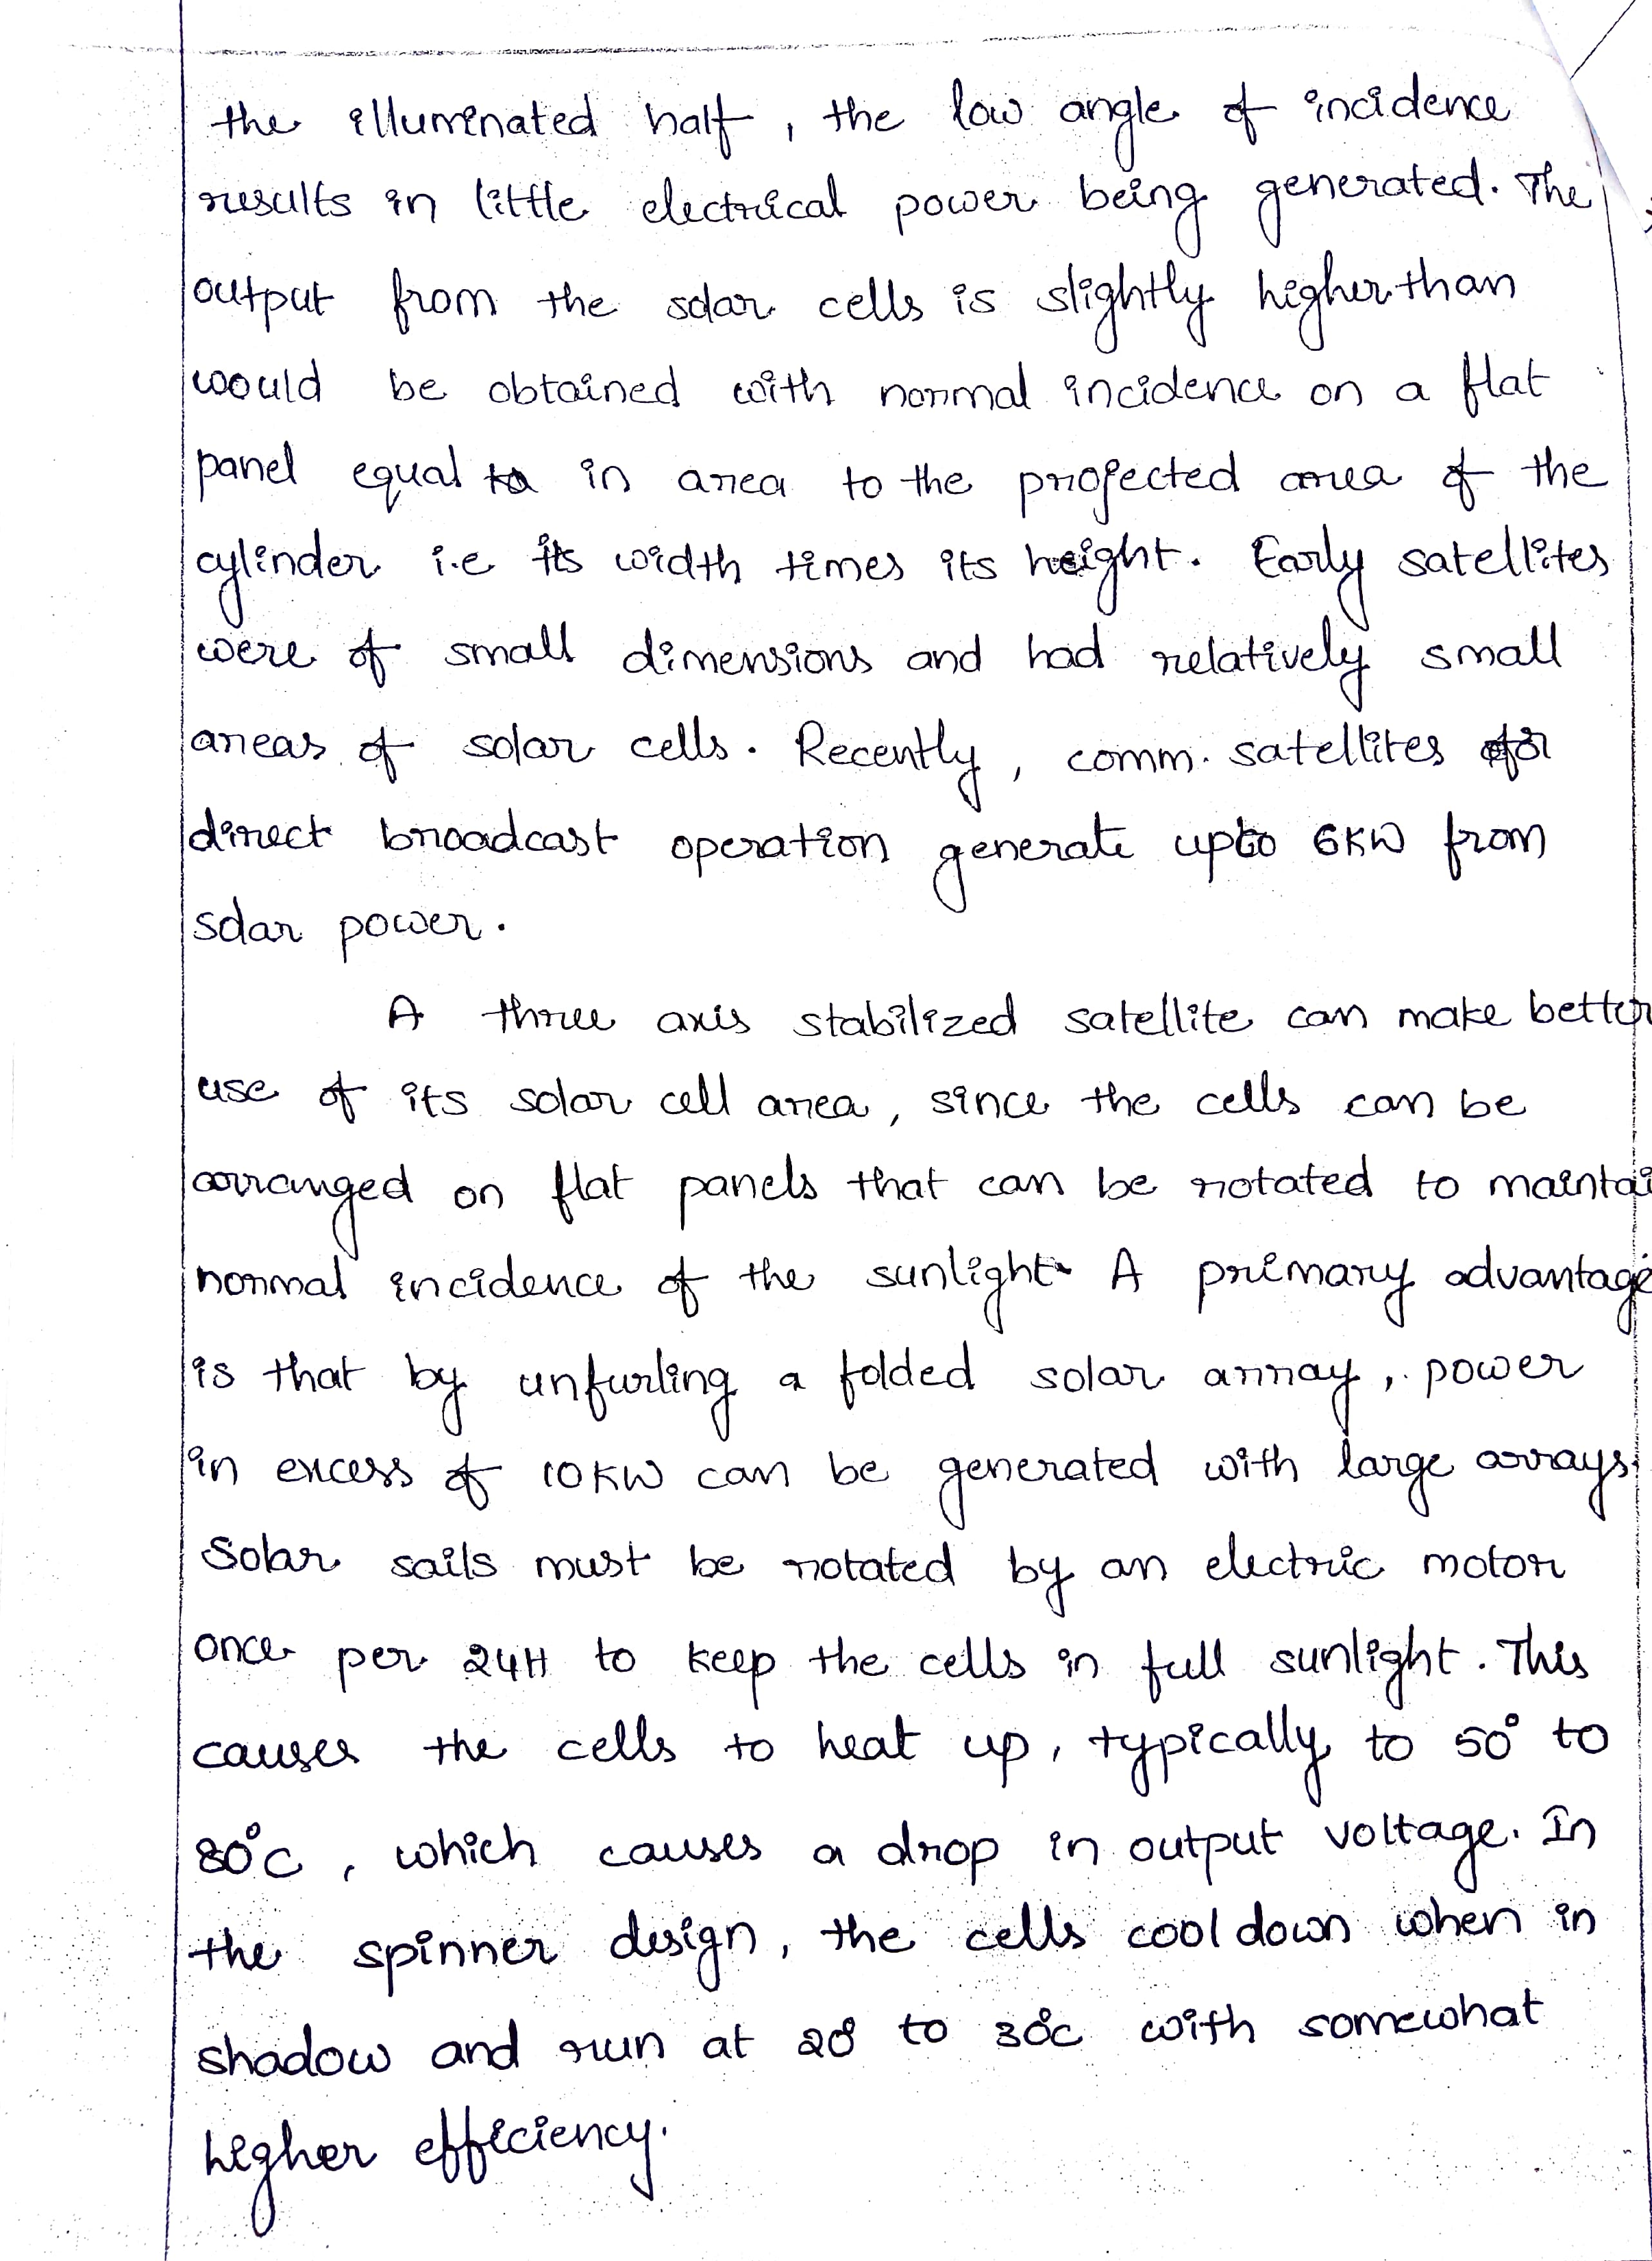 the illuminated half, the low angle of incidence
results in little electrical power being generated. The
output from the solar cells is slightly higher than
would be obtained with normal incidence on a flat
panel equal in area to the projected area of the
cylinder i.e its width times its height. Early satellites
were of small dimensions and had relatively small
areas of solar cells. Recently, comm. satellites for
direct broadcast operation generate upto 6KW from
solar power.
A three axis stabilized satellite can make better
use of its solar cell area, since the cells can be
arranged on flat panels that can be rotated to maintai
normal incidence of the sunlight. A primary advantage
is that by unfurling a folded solar array, power
in excess of 10KW can be generated with large arrays.
Solar sails must be rotated by an electric motor
once per 24H to keep the cells in full sunlight. This
causes the cells to heat up, typically to 50° to
80°C, which causes a drop in output voltage. In
the spinner design, the cells cool down when in
shadow and run at 20° to 30°C with somewhat
higher efficiency.